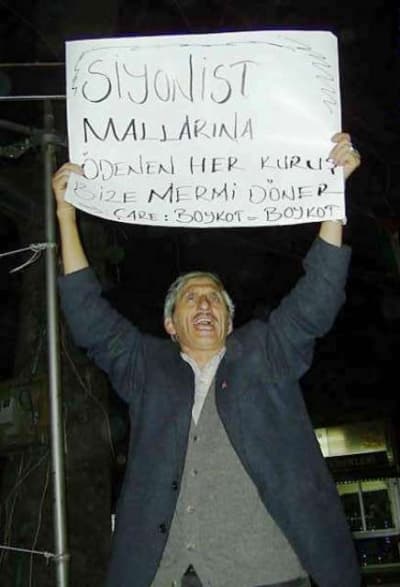 SİYONİST
MALLARINA
ÖDENEN HER KURUŞ
BİZE MERMİ DÖNER
ÇARE : BOYKOT = BOYKOT